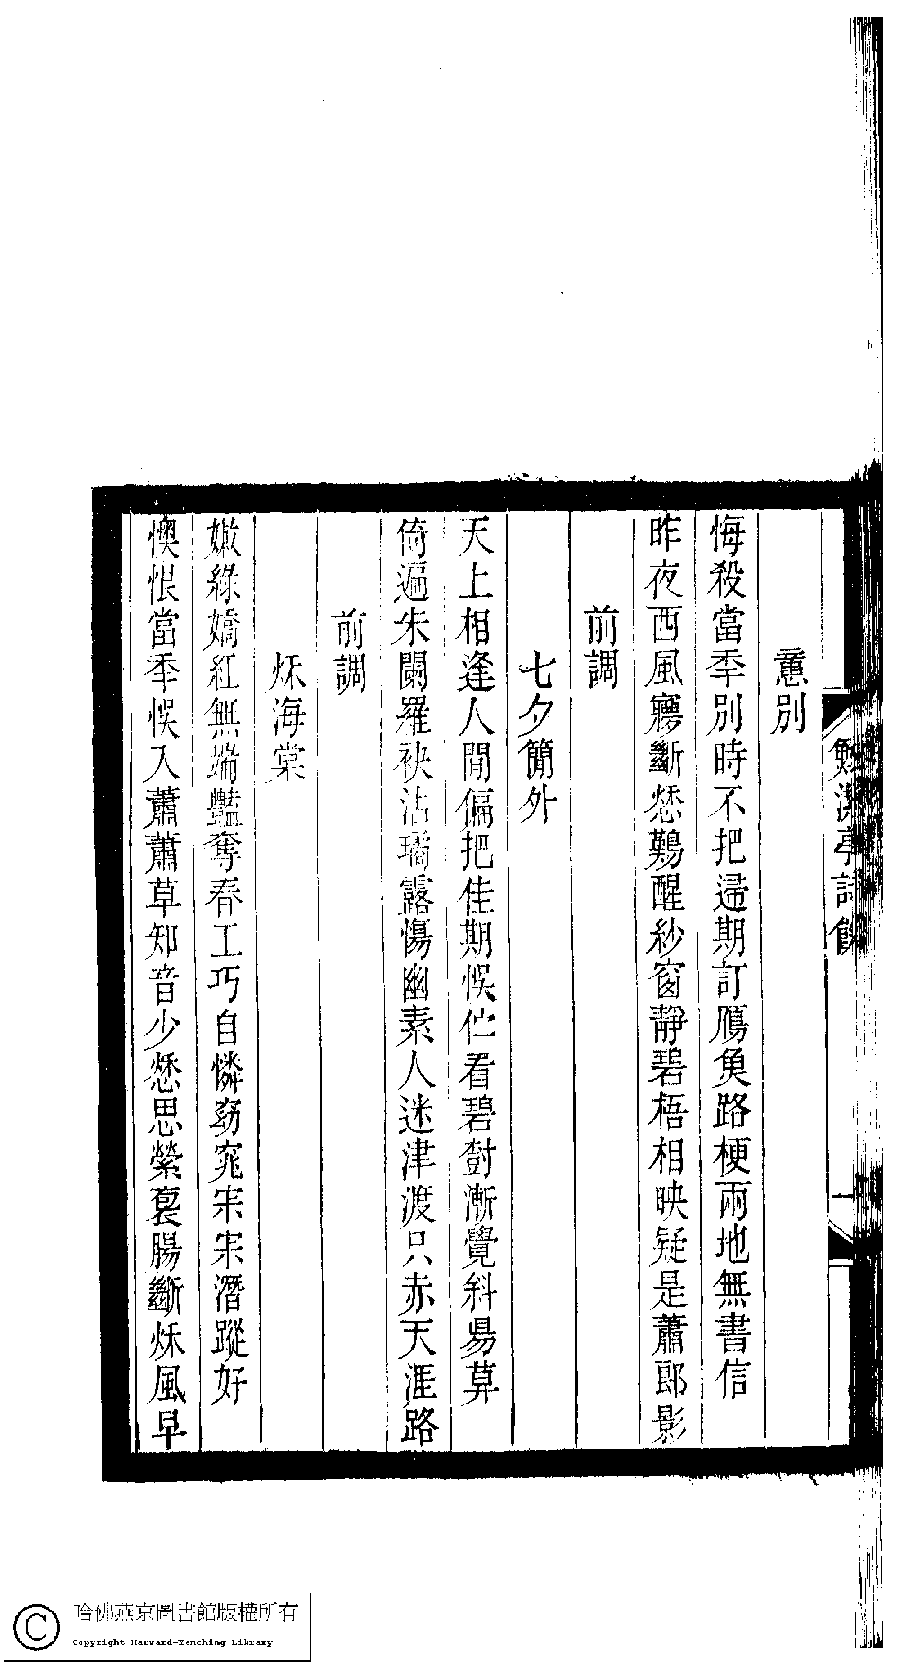 意別
悔殺當秊別時不把歸期訂鴈魚路梗兩地無書信
昨夜西風寢斷愁鷄醒紗窗靜碧梧相映疑是蕭郎影
前調
七夕簡外
天上相逢人閒偏把佳期悞伫看碧尌漸覺斜昜草
倚遍朱闌羅袂沾璚露傷幽素人迷津渡只赤天涯路
前調
秌海棠
嫩綠嬌紅無端豔奪春工巧自憐窈窕宋宋潛蹤好
懊恨當秊悞入蕭蕭草知音少愁思縈裛腸斷秌風早
亭詩餘
哈佛燕京圖書館版權所有
Copyright Harvard-Yenching Library